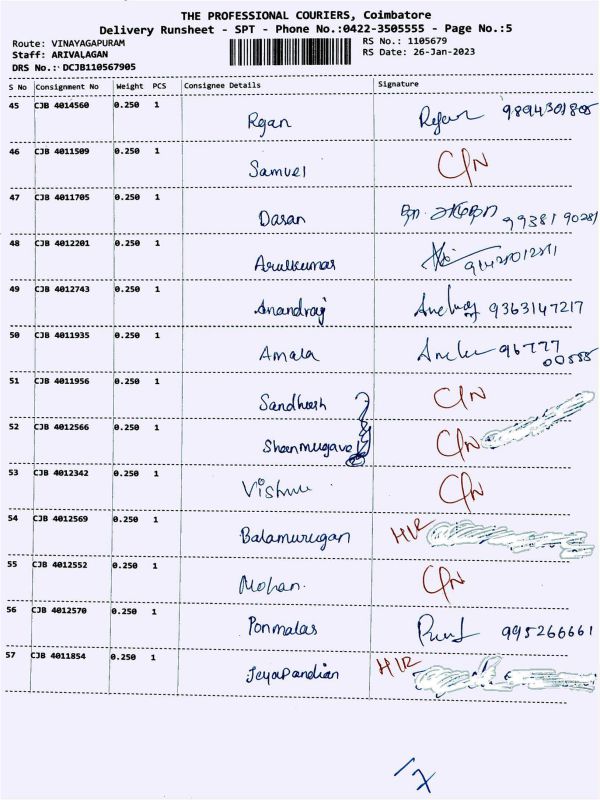 THE PROFESSIONAL COURIERS, Coimbatore
Delivery Runsheet - SPT - Phone No.:0422-3505555 - Page No.:5
Route: VINAYAGAPURAM
RS No.: 1105679
Staff: ARIVALAGAN
RS Date: 26-Jan-2023
DRS No.: DCJB110567905
S No Consignment No Weight PCS Consignee Details Signature
45 CJB 4014560 0.250 1 Rejan
46 CJB 4011509 0.250 1 Samuel C/N
47 CJB 4011705 0.250 1 Dasan 9938190281
48 CJB 4012201 0.250 1 Arulkumar
49 CJB 4012743 0.250 1 Anandraj 9363147217
50 CJB 4011935 0.250 1 Amala 96777
00555
51 CJB 4011956 0.250 1 Sandheesh C/N
52 CJB 4012566 0.250 1 Shenmugavel C/N
53 CJB 4012342 0.250 1 Vishnu C/N
54 CJB 4012569 0.250 1 Balamurugan HIR
55 CJB 4012552 0.250 1 Mohan. C/N
56 CJB 4012570 0.250 1 Ponmalas 995266661
57 CJB 4011854 0.250 1 Jeyapandian HIR